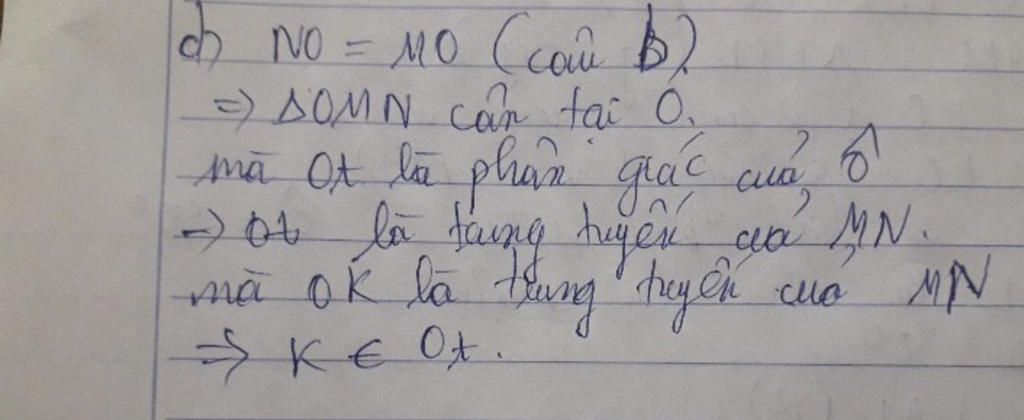 d) NO = MO (câu b).
=> ΔOMN cân tại O.
mà Ot là phân giác của Ô
=> Ot là trung tuyến của MN.
mà OK là trung tuyến của MN
=> K ∈ Ot.